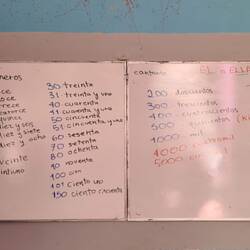 meros
oce
rece
atorce
quince
diez y seis
diez y siete
diez y ocho
veinte
30 treinta
31 treinta y uno
40 cuarenta
41 cuarenta y uno
50 cincuenta
51 cincuenta y uno
60 sesenta
70 setenta
80 ochenta
90 noventa
100 cien
101 ciento uno
150 ciento cincuenta
EL o ELLA
200 doscientos
300 trescientos
400 cuatrocientos
500 quinientos
1000 mil
4000 cuatro mil
5000